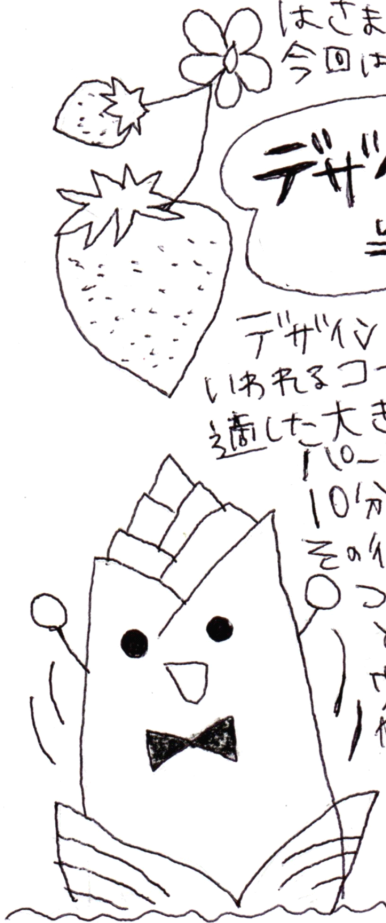 はさま
今回は
デザイ
デザイン
いわれるコー
適した大き
パー
10分
その
つ